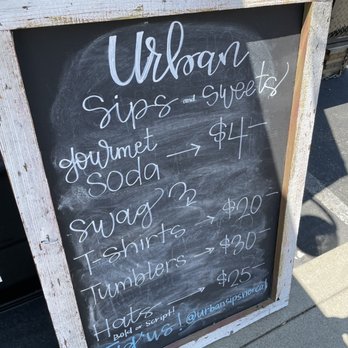 Urban
Sips and Sweets
gourmet
Soda → $4
Swag
T-shirts → $20
Tumblers → $30
Hats → $25
Bold or Script!
us! @urbansipsnorcal